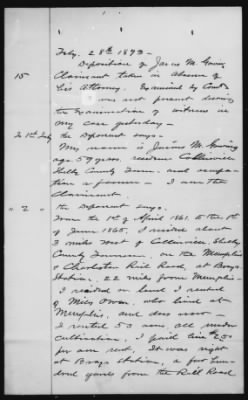 Feby. 28th 1873 –
Deposition of James M. Irving
15 Claimant taken in Absence of
his Attorney. Examined by Coml.
was not present during
the Examination of witness in
my case yesterday –
To 1st Intg the Deponent says –
My name is James M. Irving
age 59 years, residence Colliersville
Shelby County Tenn. and occupa-
tion a farmer – I am the
Claimant.
" 2 " the Deponent says.
From the 1st of April 1861, to the 1st
of June 1865, I resided about
3 miles West of Colliersville, Shelby
County Tennessee, on the Memphis
& Charleston Rail Road, at Bray's
Station, 22 miles from Memphis –
I resided on land I rented
of Miles Owen, who lived at
Memphis, and does now –
I rented 50 acres, all under
cultivation, I paid him $250
per an. rent, It was right
at Brays Station, a few hun-
dred yards from the Rail Road